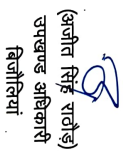 (अजीत सिंह राठौड़)
उपखण्ड अधिकारी
बिजौलियां